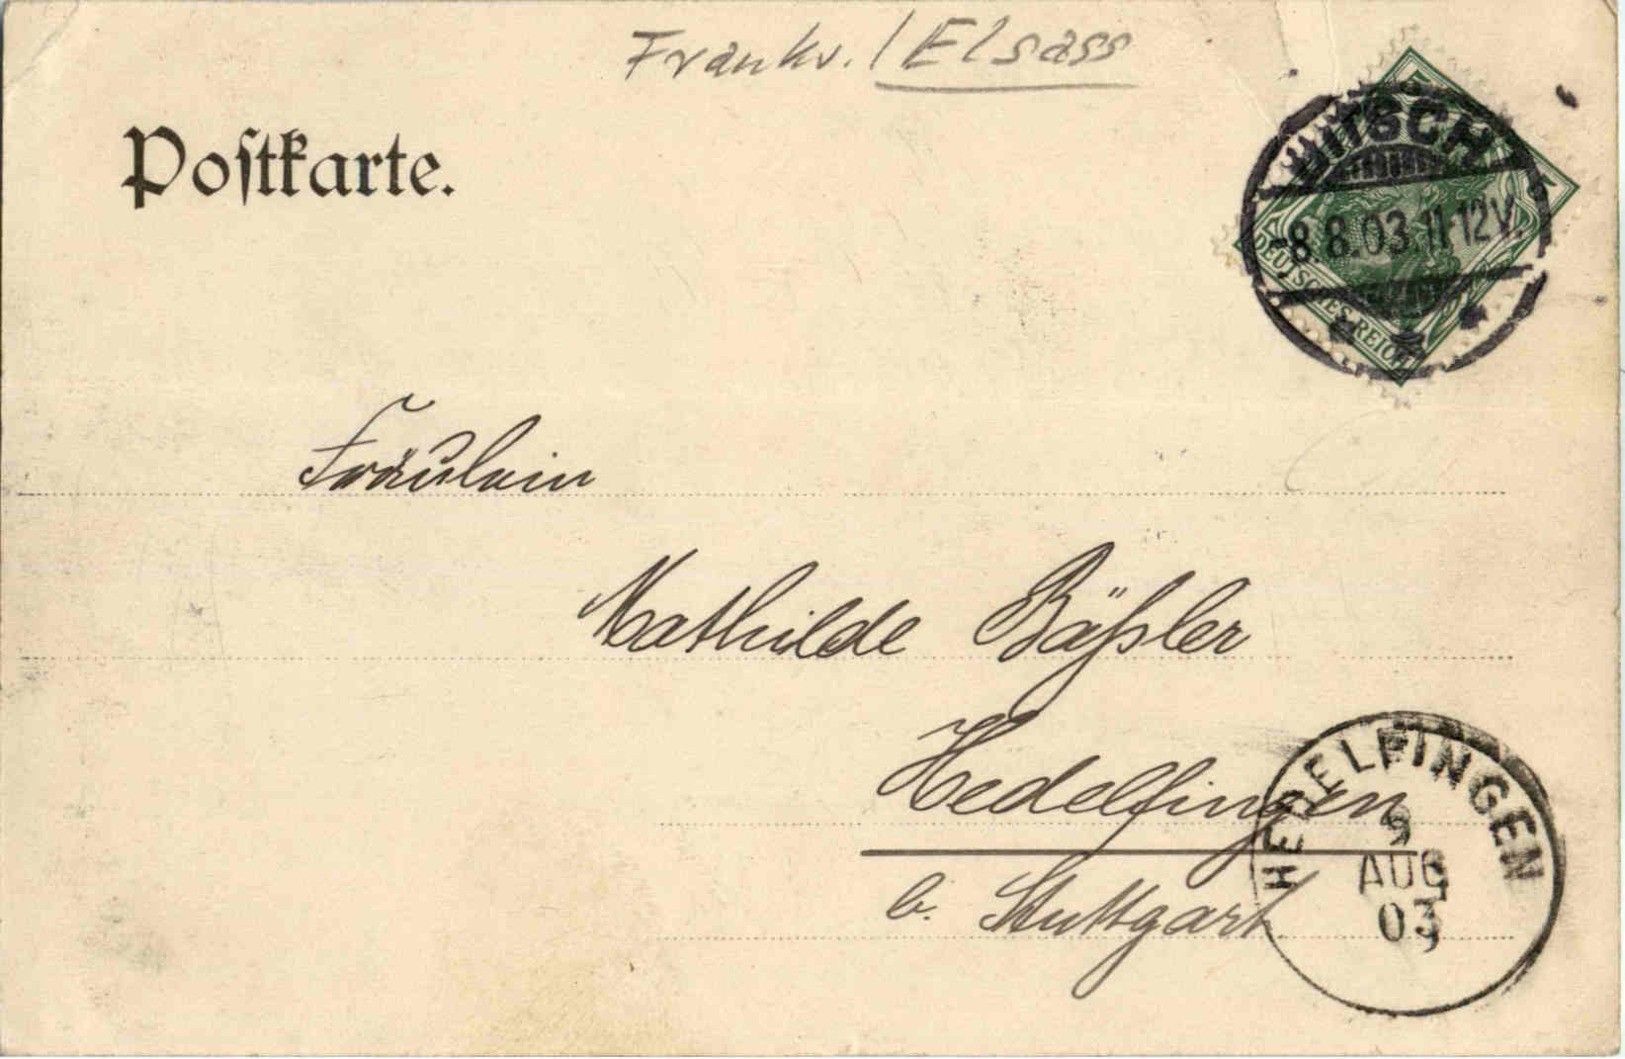 Frankr. / Elsass
Postkarte.
BITSCH
-8.8.03.11-12V.
DEUTSCHES REICH
Fräulein
Mathilde Bäßler
Hedelfingen
b. Stuttgart
HEDELFINGEN
9
AUG
03